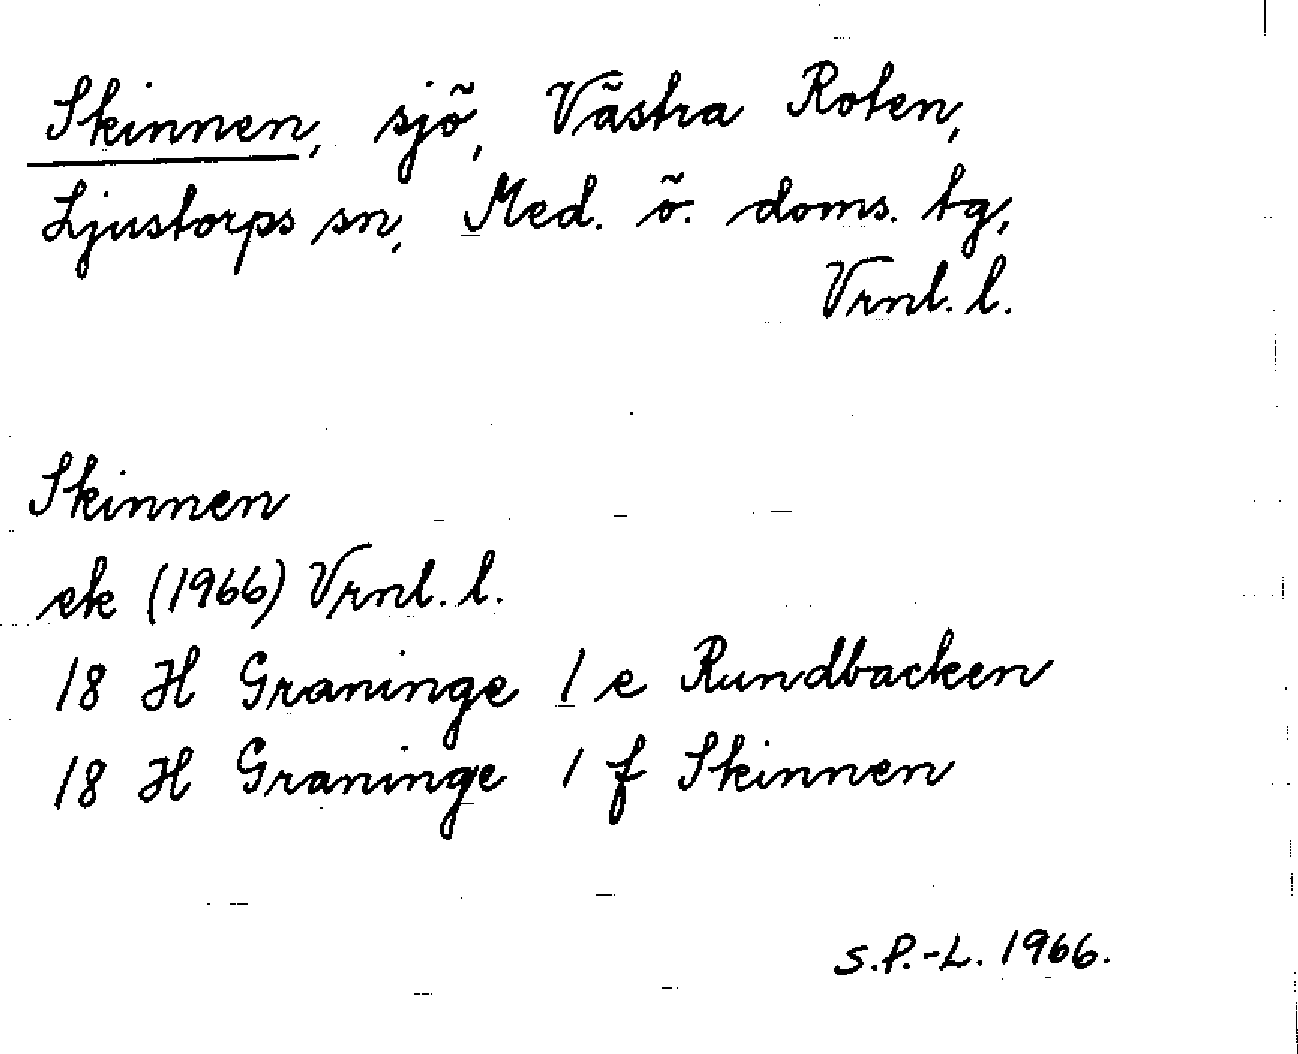 Skinnen, sjö, Västra Roten,
Ljustorps sn, Med. ö. doms. tg,
Vrnl. l.
Skinnen
ek (1966) Vrnl. l.
18 H Graninge 1 e Rundbacken
18 H Graninge 1 f Skinnen
S.P.-L. 1966.